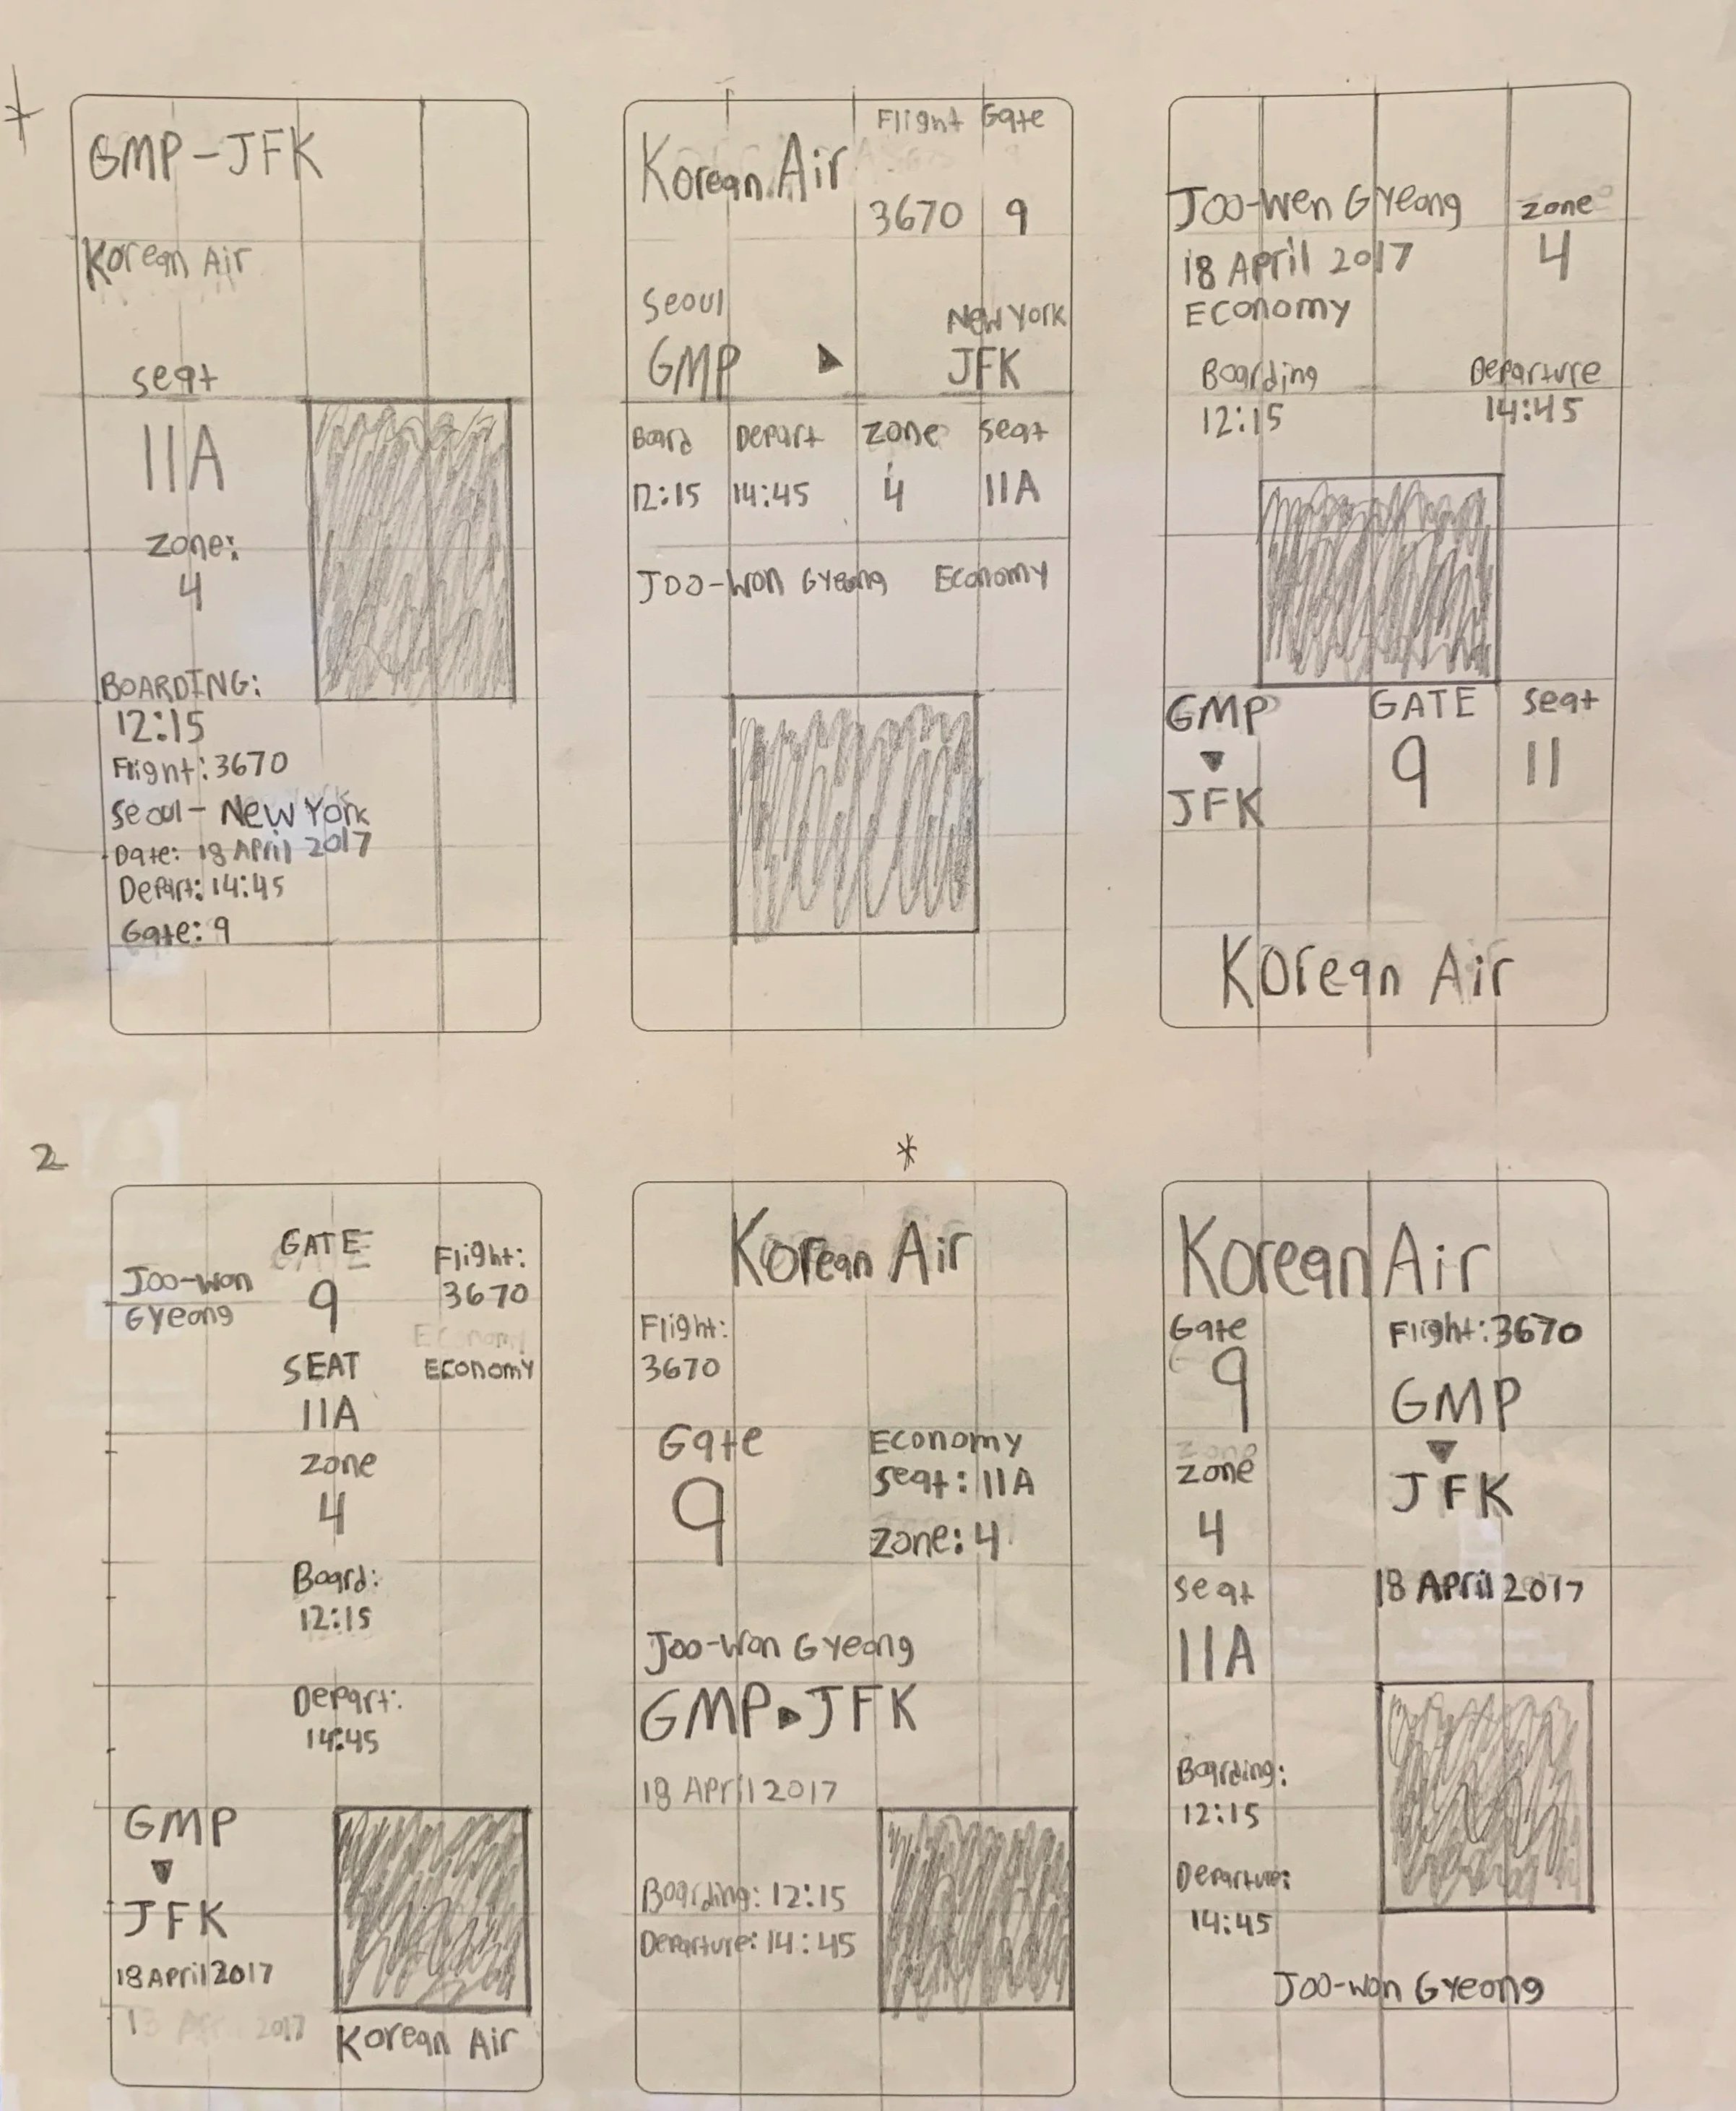 GMP-JFK
Korean Air
seat
11A
zone:
4
BOARDING:
12:15
Flight: 3670
Seoul - New York
Date: 18 April 2017
Depart: 14:45
Gate: 9
Flight Gate
Korean Air
3670 9
Seoul New York
GMP ▶ JFK
Board Depart zone seat
12:15 14:45 4 11A
Joo-won Gyeong Economy
Joo-wen Gyeong zone
18 April 2017 4
Economy
Boarding Departure
12:15 14:45
GMP GATE seat
▼ 9 11
JFK
Korean Air
2
GATE Flight:
Joo-won 9 3670
Gyeong
SEAT Economy
11A
zone
4
Board:
12:15
Depart:
14:45
GMP
▼
JFK
18 April 2017
Korean Air
*
Korean Air
Flight:
3670
Gate Economy
9 seat: 11A
zone: 4
Joo-won Gyeong
GMP ▶ JFK
18 April 2017
Boarding: 12:15
Departure: 14:45
Korean Air
Gate Flight: 3670
9 GMP
▼
zone JFK
4
seat 18 April 2017
11A
Boarding:
12:15
Departure:
14:45
Joo-won Gyeong